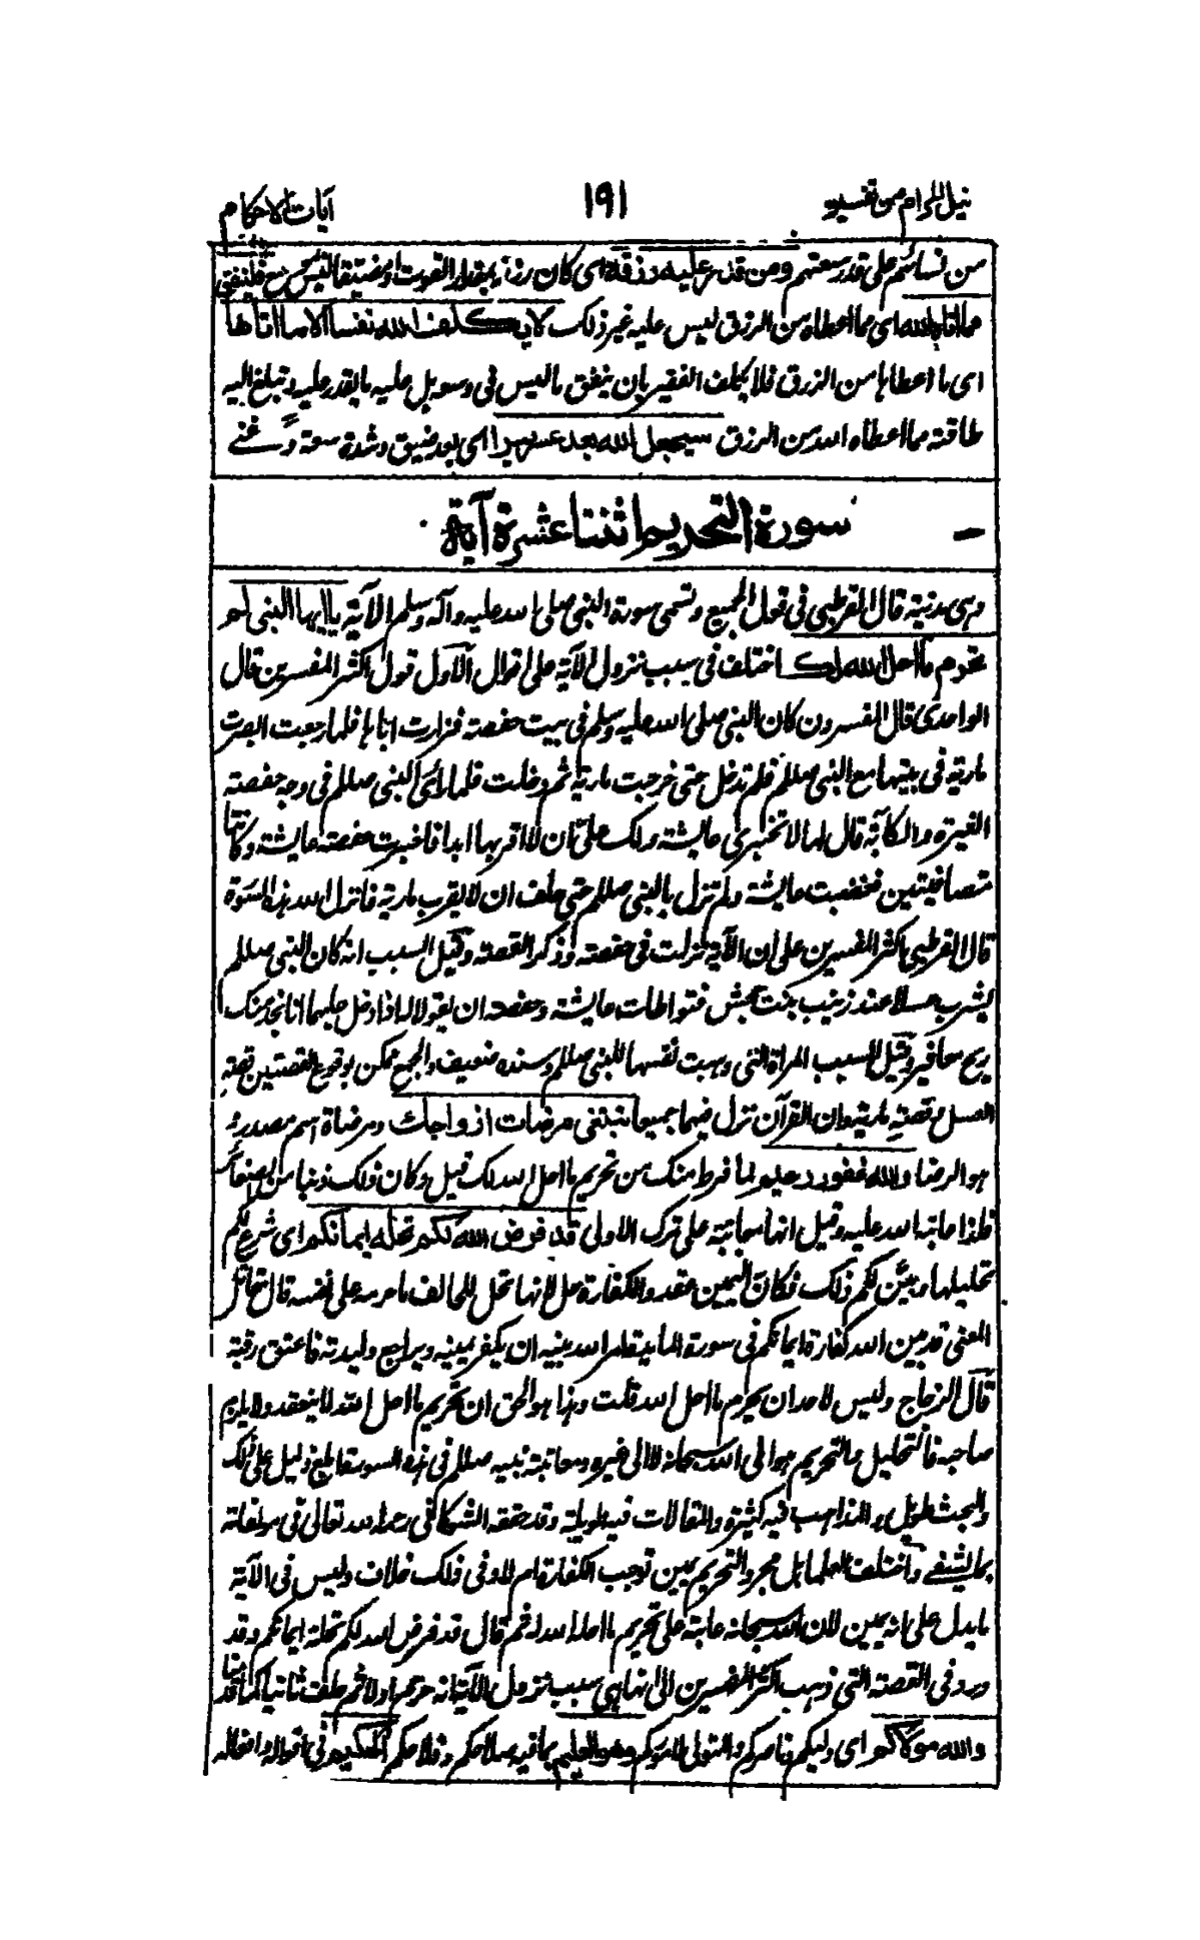 نيل المرام من تفسير ١٩١ آيات الاحكام
من نسائهم على قدر سعتهم ومن قدر عليه رزقه اى كان رزقه بمقدار القوت او مضيقا ليس بموسع فلينفق
مما اتاه الله اى مما اعطاه من الرزق ليس عليه غير ذلك لا يكلف الله نفسا الا ما اتاها
اى ما اعطاها من الرزق فلا يكلف الفقير بان ينفق ما ليس فى وسعه بل عليه ما يقدر عليه وتبلغ اليه
طاقته مما اعطاه الله من الرزق سيجعل الله بعد عسر يسرا اى بعد ضيق وشدة سعة وغنى
سورة التحريم اثنتا عشرة آية
وهى مدنية قال القرطبى فى قول الجميع وتسمى سورة النبى صلى الله عليه وآله وسلم الآية يا ايها النبى لم
تحرم ما احل الله لك اختلف فى سبب نزول الآية على اقوال الاول قول اكثر المفسرين قال
الواحدى قال المفسرون كان النبى صلى الله عليه وسلم فى بيت حفصة فزارت اباها فلما رجعت ابصرت
مارية فى بيتها مع النبى صللم فلم تدخل حتى خرجت مارية ثم دخلت فلما رأى النبى صللم فى وجه حفصة
الغيرة والكآبة قال لها لا تخبرى عايشة ولك على ان لا اقربها ابدا فاخبرت حفصة عايشة وكانتا
متصافيتين فغضبت عايشة ولم تزل بالنبى صللم حتى حلف ان لا يقرب مارية فانزل الله هذه السورة
قال القرطبى اكثر المفسرين على ان الآية نزلت فى حفصة وذكر القصة وقيل السبب انه كان النبى صللم
يشرب عسلا عند زينب بنت جحش فتواطات عايشة وحفصة ان تقولا له اذا دخل عليهما انا نجد منك
ريح مغافير وقيل السبب المراة التى وهبت نفسها للنبى صللم وسنده ضعيف والجمع ممكن بوقوع القصتين قصة
العسل وقصة مارية وان القرآن نزل فيهما جميعا تبتغى مرضات ازواجك ومرضاة اسم مصدر و
هو الرضا والله غفور رحيم لما فرط منك من تحريم ما احل الله لك قيل وكان ذلك ذنبا من الصغائر
فلذا عاتبه الله عليه وقيل انها معاتبة على ترك الاولى قد فرض الله لكم تحلة ايمانكم اى شرع لكم
تحليلها وبين لكم ذلك فكان اليمين عقد والكفارة حل لانها تحل للحالف ما حرمه على نفسه قال مقاتل
المعنى قد بين الله كفارة ايمانكم فى سورة المائدة امر الله نبيه ان يكفر يمينه ويراجع وليدته فاعتق رقبة
قال الزجاج وليس لاحد ان يحرم ما احل الله قلت وهذا هو الحق ان تحريم ما احل الله لا ينعقد ولا يلزم
صاحبه فالتحليل والتحريم هو الى الله سبحانه لا الى غيره ومعاتبته نبيه صللم فى هذه السورة ابلغ دليل على ذلك
والبحث طويل والمذاهب فيه كثيرة والمقالات فيه طويلة وقد حققه الشوكانى رحمه الله تعالى فى مولفاته
بما يشفى واختلف العلما هل مجرد التحريم يمين توجب الكفارة ام لا وفى ذلك خلاف وليس فى الآية
ما يدل على انه يمين لان الله سبحانه عاتبه على تحريم ما احله الله له ثم قال قد فرض الله لكم تحلة ايمانكم وقد
ورد فى القصة التى ذهب اكثر المفسرين الى انها هى سبب نزول الآية انه حرم اولا ثم حلف ثانيا كما قدمنا
والله مولاكم اى وليكم وناصركم والمتولى لاموركم وهو العليم بما فيه صلاحكم وفلاحكم الحكيم فى اقواله وافعاله